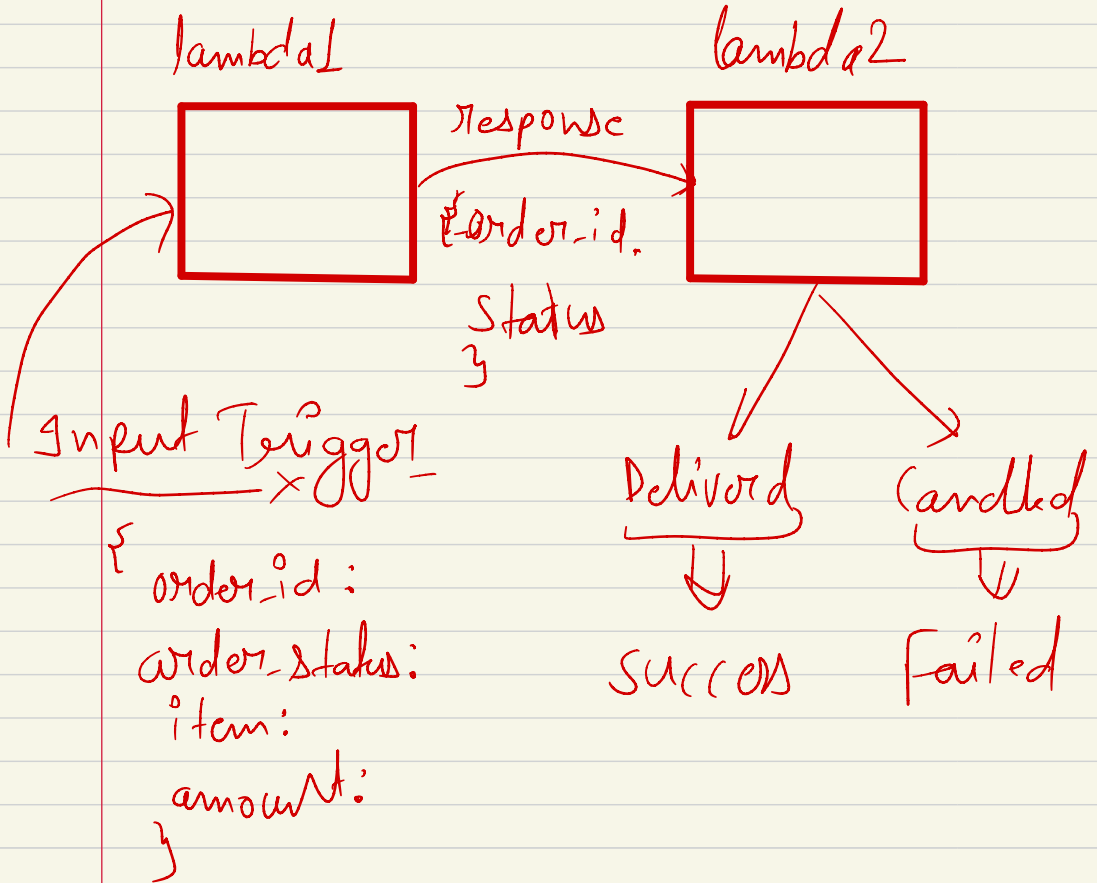 lambda1
lambda2
response
{order_id.
status
}
Input Trigger
{
order_id:
order_status:
item:
amount:
}
Deliverd
Cancelled
success
Failed